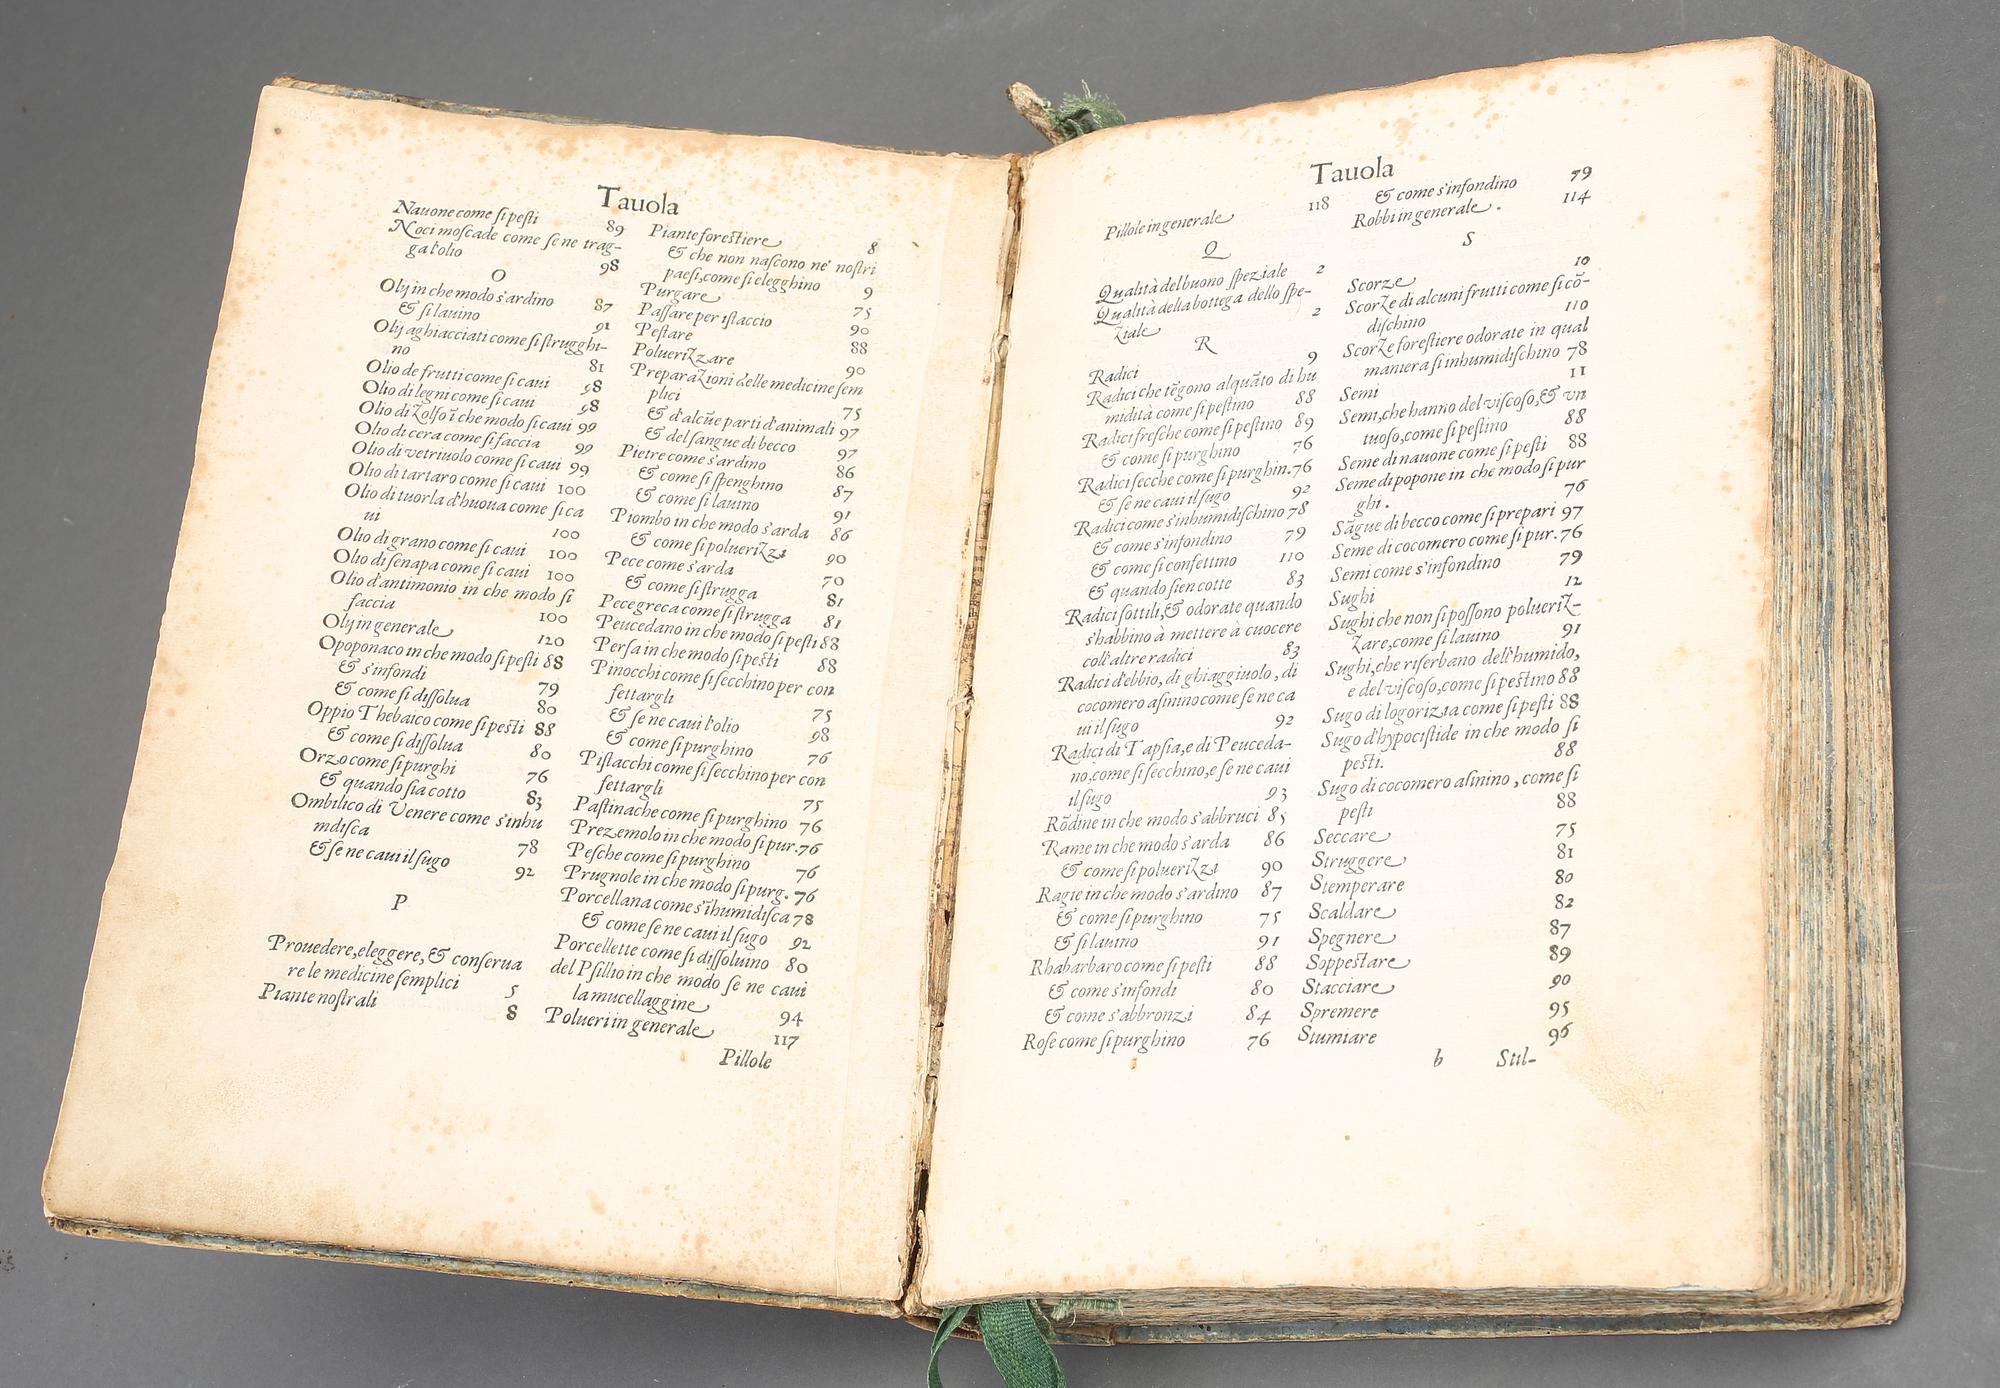 Tauola
Nauone come si pesti 89
Noci moscade come se ne trag-
ga l'olio 98
O
Olij in che modo s'ardino 87
& si lauino 91
Olij aghiacciati come si strugghi-
no 81
Olio de frutti come si caui 98
Olio di legni come si caui 98
Olio di Zolfo ī che modo si caui 99
Olio di cera come si faccia 99
Olio di vetriuolo come si caui 99
Olio di tartaro come si caui 100
Olio di tuorla d'huoua come si ca
ui 100
Olio di grano come si caui 100
Olio di senapa come si caui 100
Olio d'antimonio in che modo si
faccia 100
Olij in generale 120
Opoponaco in che modo si pesti 88
& s'infondi 79
& come si dissolua 80
Oppio Thebaico come si pesti 88
& come si dissolua 80
Orzo come si purghi 76
& quando sia cotto 83
Ombilico di Venere come s'inhu
midisca 78
& se ne caui il sugo 92
P
Prouedere, eleggere, & conserua
re le medicine semplici 5
Piante nostrali 8
Piante forestiere 8
& che non nascono ne' nostri
paesi, come si elegghino 9
Purgare 75
Passare per istaccio 90
Pestare 88
Poluerizzare 90
Preparazioni delle medicine sem
plici 75
& d'alcūe parti d'animali 97
& del sangue di becco 97
Pietre come s'ardino 86
& come si spenghino 87
& come si lauino 91
Piombo in che modo s'arda 86
& come si poluerizzi 90
Pece come s'arda 70
& come si strugga 81
Pece greca come si strugga 81
Peucedano in che modo si pesti 88
Persa in che modo si pesti 88
Pinocchi come si secchino per con
fettargli 75
& se ne caui l'olio 98
& come si purghino 76
Pistacchi come si secchino per con
fettargli 75
Pastinache come si purghino 76
Prezemolo in che modo si pur. 76
Pesche come si purghino 76
Prugnole in che modo si purg. 76
Porcellana come s'īhumidisca 78
& come se ne caui il sugo 92
Porcellette come si dissoluino 80
del Psillio in che modo se ne caui
la mucellaggine 94
Polueri in generale 117
Pillole
Tauola
Pillole in generale 118
Q
Qualità del buono speziale 2
Qualità della bottega dello spe-
ziale 2
R
Radici 9
Radici che tēgono alquāto di hu
midità come si pestino 88
Radici fresche come si pestino 89
& come si purghino 76
Radici secche come si purghin. 76
& se ne caui il sugo 92
Radici come s'inhumidischino 78
& come s'infondino 79
& come si confettino 110
& quando sien cotte 83
Radici sottili, & odorate quando
s'habbino à mettere à cuocere
coll'altre radici 83
Radici d'ebbio, di ghiaggiuolo, di
cocomero asinino come se ne ca
ui il sugo 92
Radici di Tapsia, e di Peuceda-
no, come si secchino, e se ne caui
il sugo 93
Rōdine in che modo s'abbruci 85
Rame in che modo s'arda 86
& come si poluerizzi 90
Ragie in che modo s'ardino 87
& come si purghino 75
& si lauino 91
Rhabarbaro come si pesti 88
& come s'infondi 80
& come s'abbronzi 84
Rose come si purghino 76
& come s'infondino 79
Robbi in generale. 114
S
Scorze 10
Scorze di alcuni frutti come si cō-
dischino 110
Scorze forestiere odorate in qual
maniera si inhumidischino 78
Semi 11
Semi, che hanno del viscoso, & vn
tuoso, come si pestino 88
Seme di nauone come si pesti 88
Seme di popone in che modo si pur
ghi. 76
Sāgue di becco come si prepari 97
Seme di cocomero come si pur. 76
Semi come s'infondino 79
Sughi 12
Sughi che non si possono polueriz-
zare, come si lauino 91
Sughi, che riserbano dell'humido,
e del viscoso, come si pestino 88
Sugo di logorizia come si pesti 88
Sugo d'hypocistide in che modo si
pesti. 88
Sugo di cocomero asinino, come si
pesti 88
Seccare 75
Struggere 81
Stemperare 80
Scaldare 82
Spegnere 87
Soppestare 89
Stacciare 90
Spremere 95
Stumiare 96
b Stil-